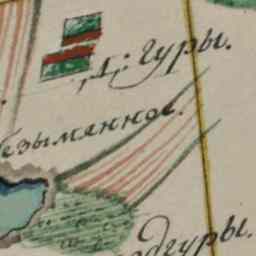 Д: Гуры.
безымянное.
одгуры.